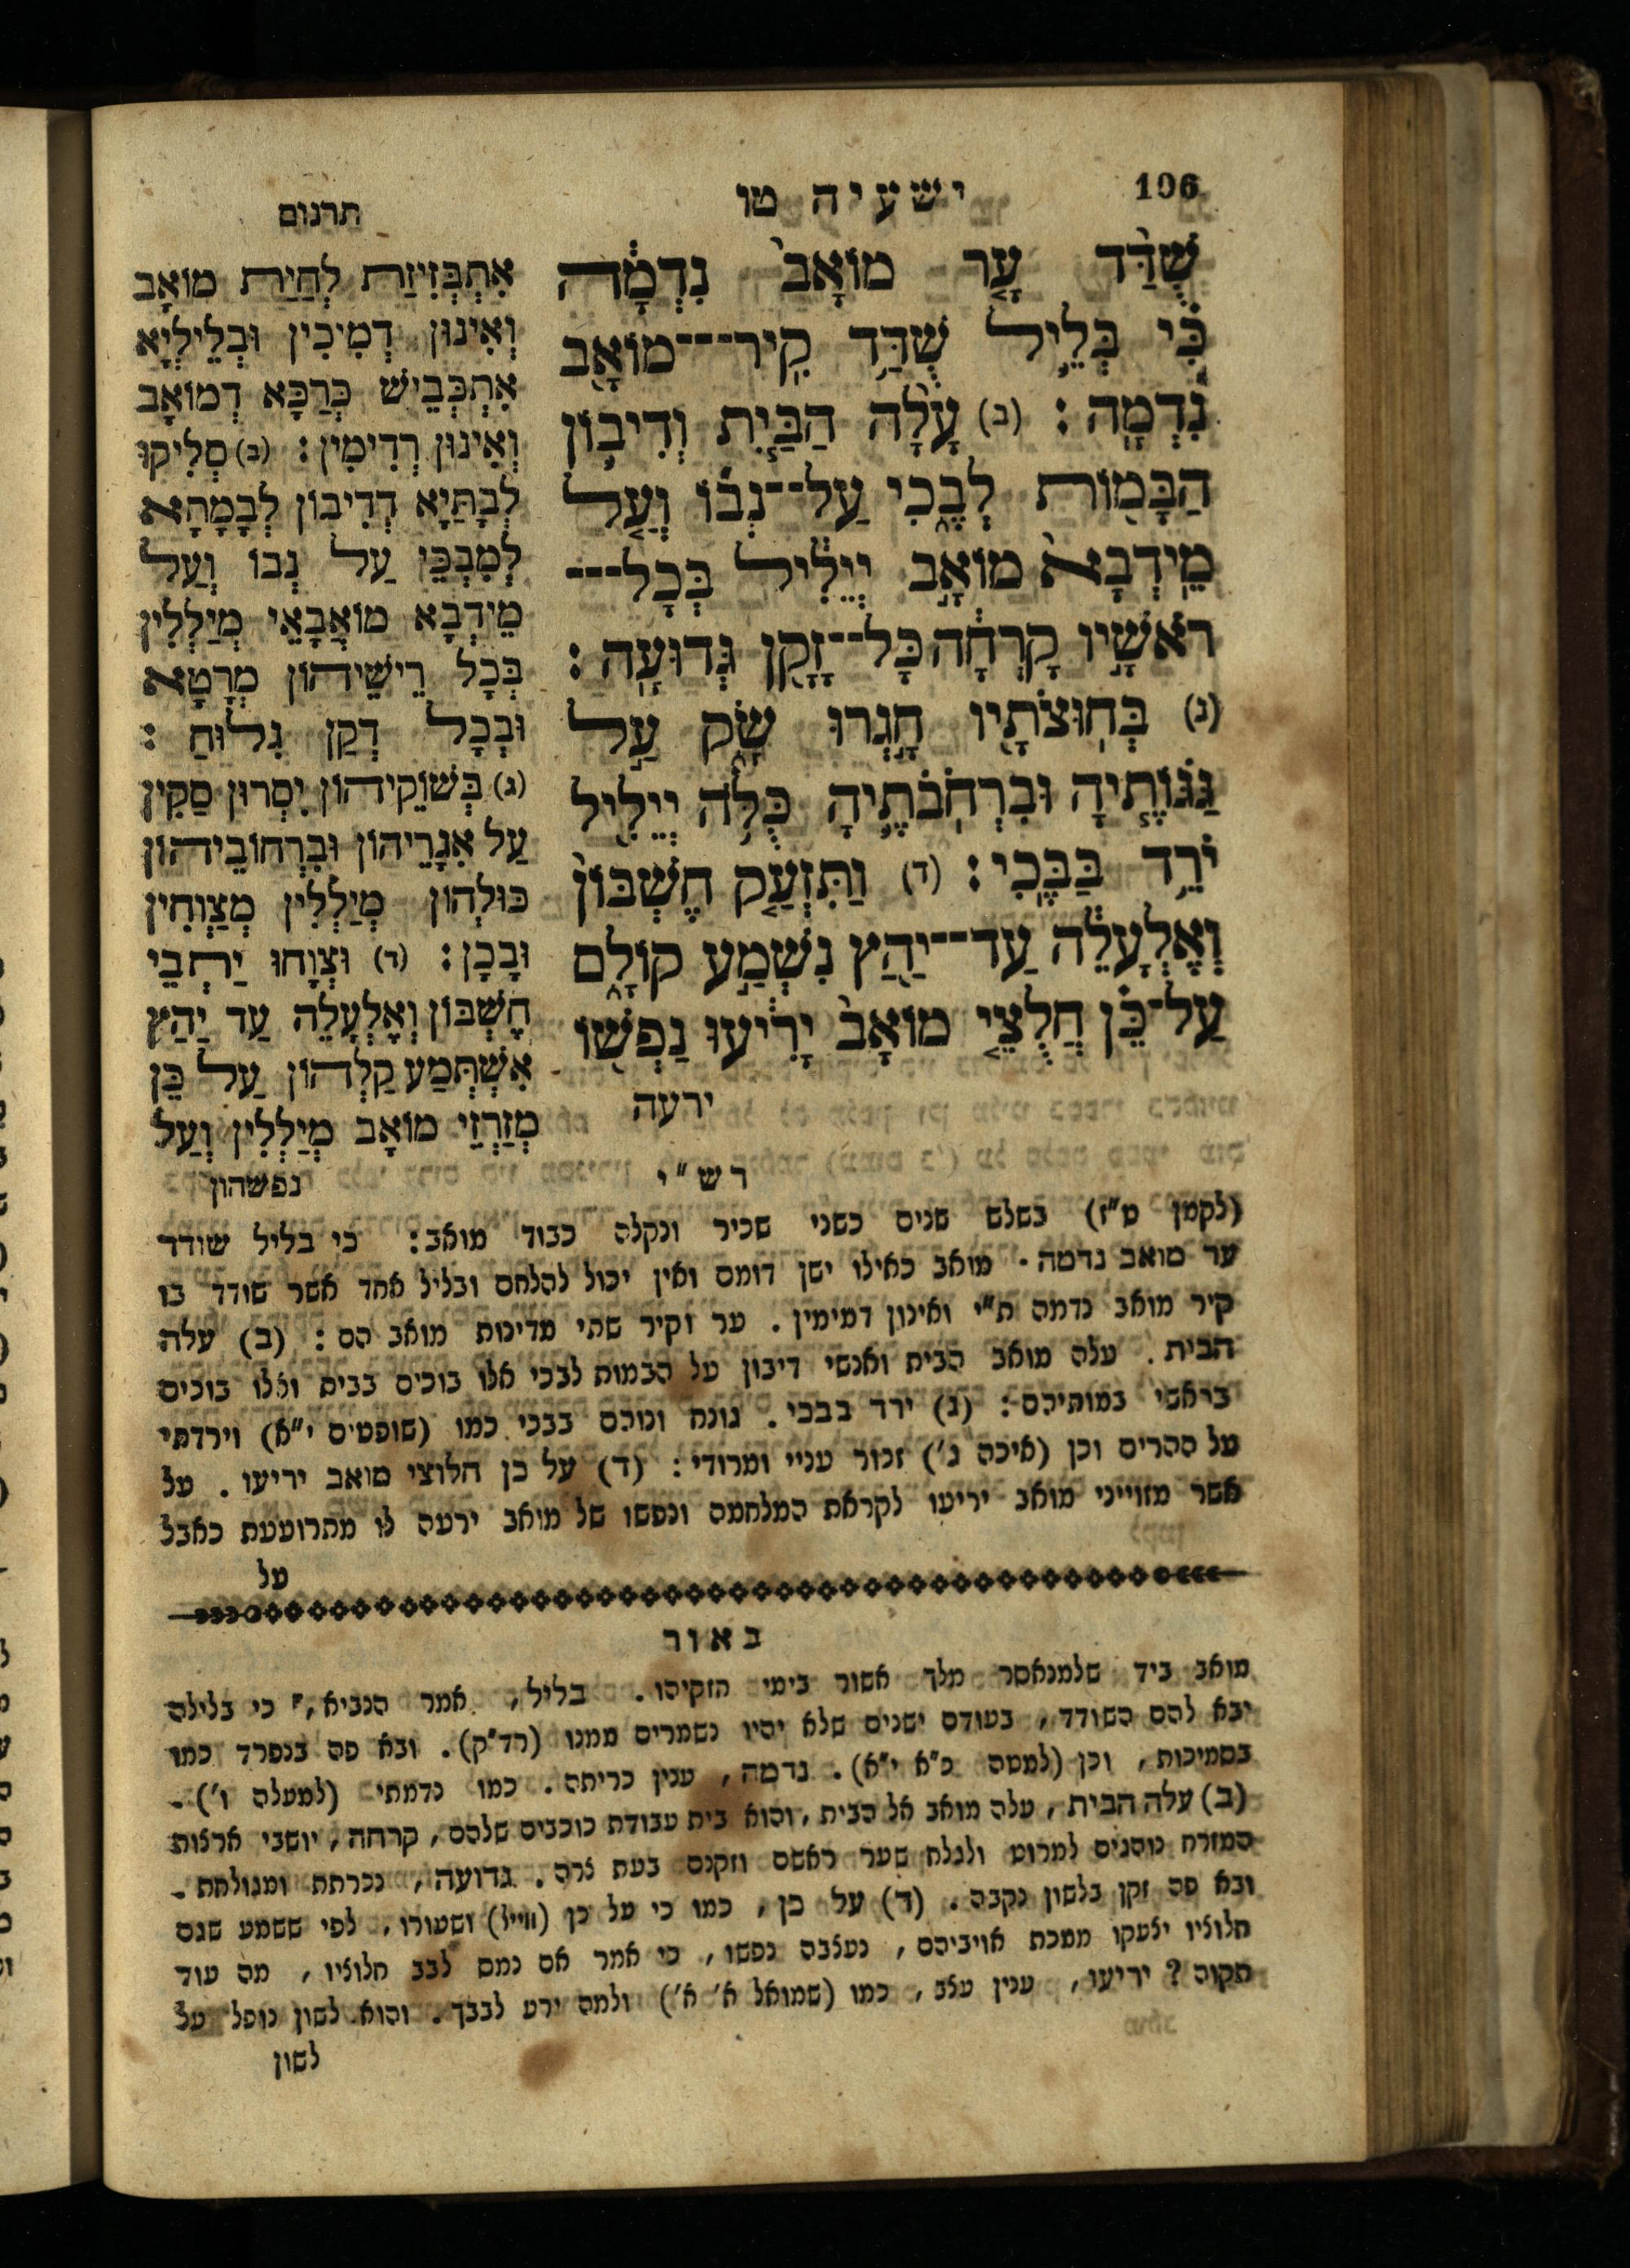 106
ישעיה טו
תרגום
שֻׁדַּד עָר מוֹאָב נִדְמָה
כִּי בְּלֵיל שֻׁדַּד קִיר־מוֹאָב
נִדְמָה : (ב) עָלָה הַבַּיִת וְדִיבוֹן
הַבָּמוֹת לְבֶכִי עַל־נְבוֹ וְעַל
מֵידְבָא מוֹאָב יְיֵלִיל בְּכָל־
רֹאשָׁיו קָרְחָה כָּל־זָקָן גְּדוּעָה :
(ג) בְּחוּצֹתָיו חָגְרוּ שָׂק עַל
גַּגּוֹתֶיהָ וּבִרְחֹבֹתֶיהָ כֻּלֹּה יְיֵלִיל
יֹרֵד בַּבֶּכִי : (ד) וַתִּזְעַק חֶשְׁבּוֹן
וְאֶלְעָלֵה עַד־יַהַץ נִשְׁמַע קוֹלָם
עַל־כֵּן חֲלֻצֵי מוֹאָב יָרִיעוּ נַפְשׁוֹ
ירעה
אִתְבְּזִיזַת לְחַיַת מוֹאָב
וְאִינוּן דְמִיכִין וּבְלֵילְיָא
אִתְכְּבֵישׁ כְּרַכָּא דְמוֹאָב
וְאִינוּן רְדִימִין : (ב) סְלִיקוּ
לְבָתַּיָא דְדִיבוֹן לְבָמָתָא
לְמִבְכֵּי עַל נְבוֹ וְעַל
מֵידְבָא מוֹאֲבָאֵי מְיַלְלִין
בְּכָל רֵישֵׁיהוֹן מְרָטָא
וּבְכָל דְקַן גִלוּחַ :
(ג) בְּשׁוֹקֵיהוֹן יִסְרוּן סַקִין
עַל אִגָרֵיהוֹן וּבִרְחוֹבֵיהוֹן
כּוּלְהוֹן מְיַלְלִין מְצַוְחִין
וּבָכָן : (ד) וּצְוָחוּ יַתְבֵי
חֶשְׁבּוֹן וְאֶלְעָלֵה עַד יַהַץ
אִשְׁתְּמַע קַלְהוֹן עַל כֵּן
מְזַרְזֵי מוֹאָב מְיַלְלִין וְעַל
נפשהון
רש"י
(לקמן ט"ז) בשלש שנים כשני שכיר ונקלה כבוד מואב : כי בליל שודד
ער מואב נדמה . מואב כאילו ישן דומם ואין יכול להלחם ובליל אחד אשר שודד בו
קיר מואב נדמה ת"י ואינון דמימין . ער וקיר שתי מדינות מואב הם : (ב) עלה
הבית . עלה מואב הבית ואנשי דיבון על הבמות לבכי אלו בוכים בבית ואלו בוכים
בראשי במותיהם : (ג) ירד בבכי . גונח ונוהם בבכי כמו (שופטים י"א) וירדתי
על ההרים וכן (איכה ג') זכור עניי ומרודי : (ד) על כן חלוצי מואב יריעו . על
אשר מזוייני מואב יריעו לקראת המלחמה ונפשו של מואב ירעה לו מתרועעת כאבל
על
באור
מואב ביד שלמנאסר מלך אשור בימי חזקיהו . בליל , אמר הנביא , כי בלילה
יבא להם השודד , בעודם ישנים שלא יהיו נשמרים ממנו (רד"ק) . ובא פה בנפרד כמו
בסמיכות , וכן (למטה כ"א י"א) . נדמה , ענין כריתה . כמו נדמתי (למעלה ו') .
(ב) עלה הבית , עלה מואב אל הבית , והוא בית עבודת כוכבים שלהם , קרחה , יושבי ארצות
המזרח נוהגים למרוט ולגלח שער ראשם וזקנם בעת צרה . גדועה , נכרתת ומגולחת .
ובא פה זקן בלשון נקבה . (ד) על כן , כמו כי על כן (ווייל) ושעורו , לפי ששמע שגם
חלוציו יצעקו ממכת אויביהם , נעצבה נפשו , כי אמר אם נמס לבב חלוציו , מה עוד
תקוה ? יריעו , ענין עצב , כמו (שמואל א' א') ולמה ירע לבבך . והוא לשון נופל על
לשון